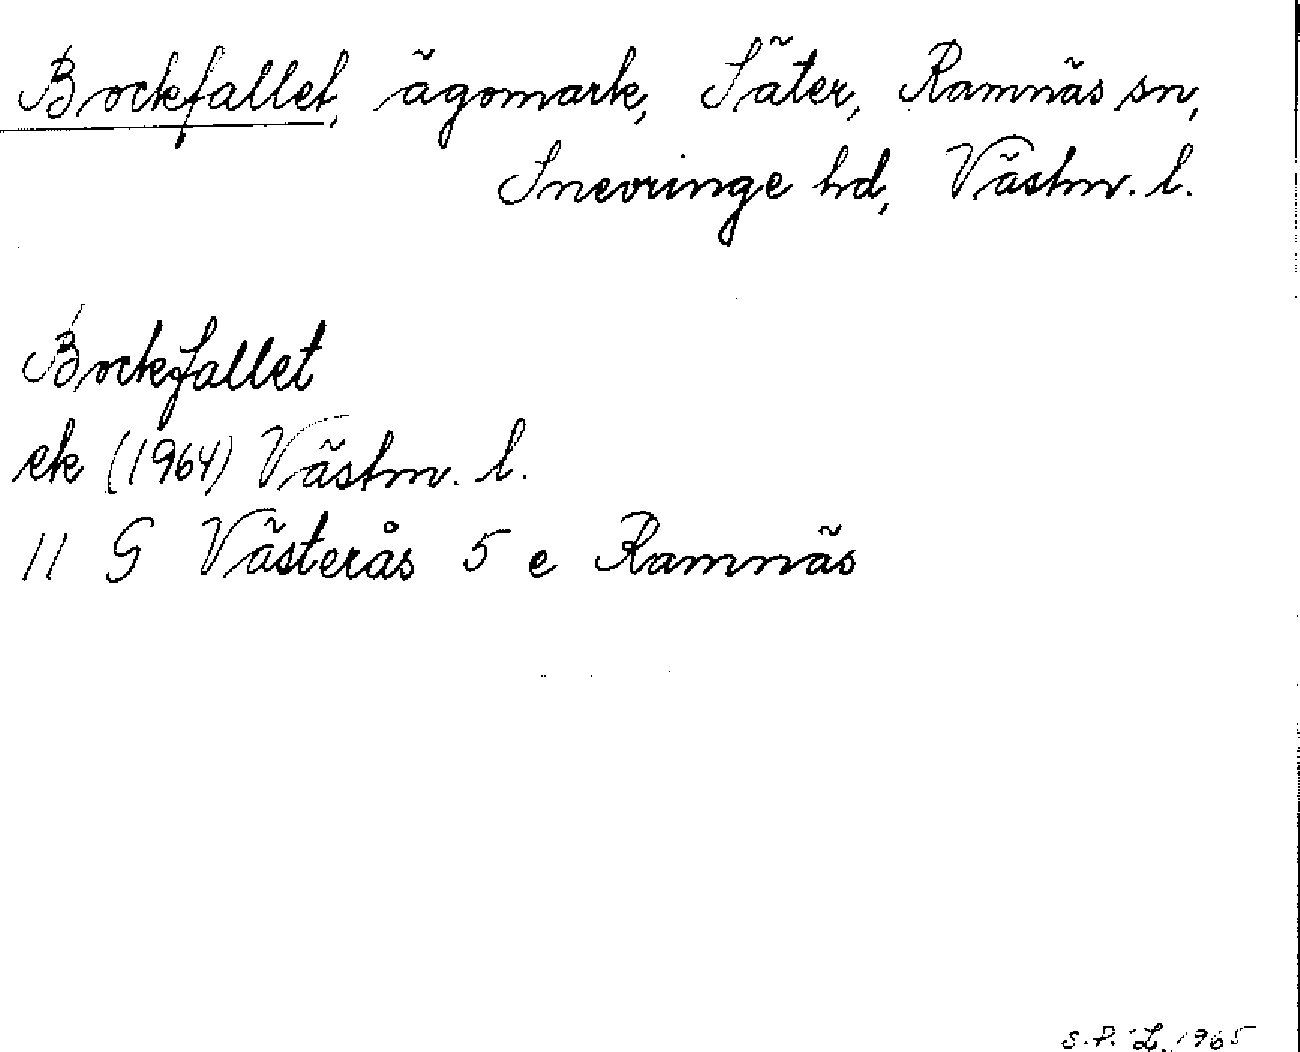 Bockfallet, ägomark, Säter, Ramnäs sn,
Snevringe hd, Västm. l.
Bockfallet
ek (1964) Västm. l.
11 G Västerås 5 e Ramnäs
S.P. L. 1965